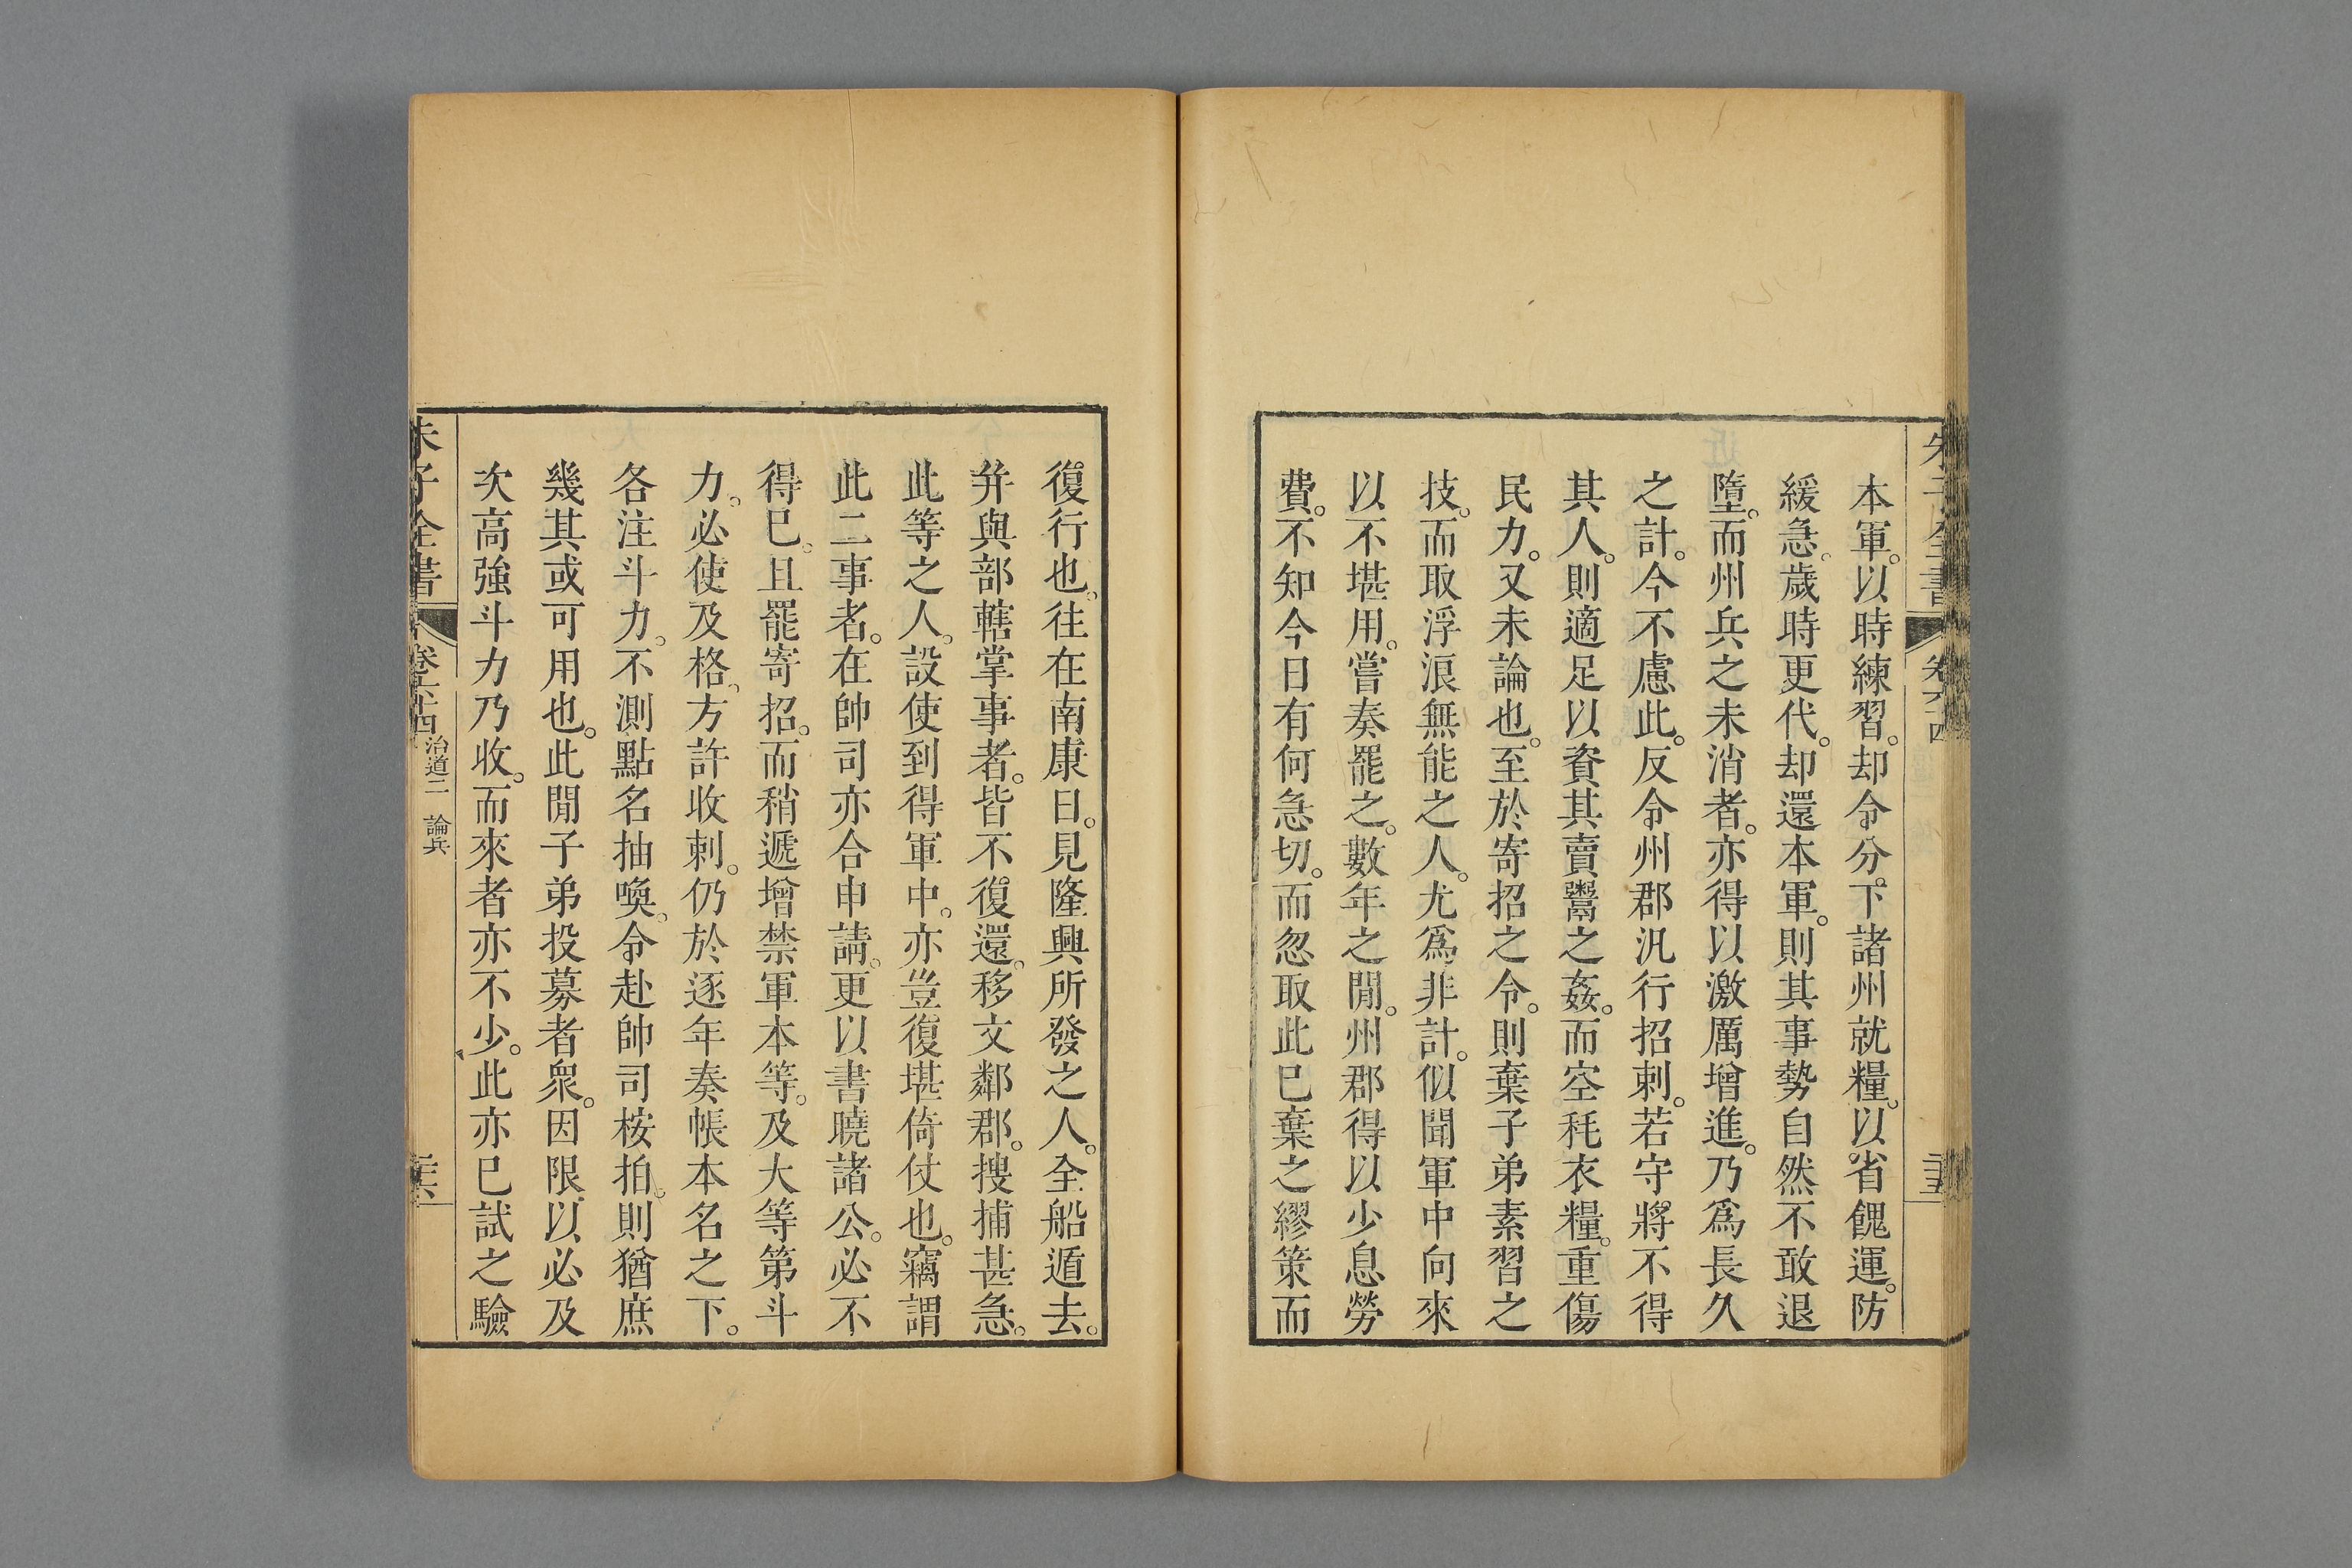 本軍。以時練習。却令分下諸州就糧。以省餽運。防
緩急。歲時更代。却還本軍。則其事勢自然不敢退
墮。而州兵之未消者。亦得以激厲增進。乃爲長久
之計。今不慮此。反令州郡汎行招刺。若守將不得
其人。則適足以資其賣鬻之姦。而空秏衣糧。重傷
民力。又未論也。至於寄招之令。則棄子弟素習之
技。而取浮浪無能之人。尤爲非計。似聞軍中向來
以不堪用。嘗奏罷之。數年之閒。州郡得以少息勞
費。不知今日有何急切。而忽取此已棄之繆策而
復行也。往在南康日。見隆興所發之人。全船遁去。
并與部轄掌事者。皆不復還。移文鄰郡。搜捕甚急。
此等之人。設使到得軍中。亦豈復堪倚仗也。竊謂
此二事者。在帥司亦合申請。更以書曉諸公。必不
得已。且罷寄招。而稍遞增禁軍本等。及大等第斗
力。必使及格。方許收刺。仍於逐年奏帳本名之下。
各注斗力。不測點名抽喚。令赴帥司桉拍。則猶庶
幾其或可用也。此閒子弟投募者衆。因限以必及
次高強斗力乃收。而來者亦不少。此亦已試之驗
朱子全書 卷六十四 治道二 論兵